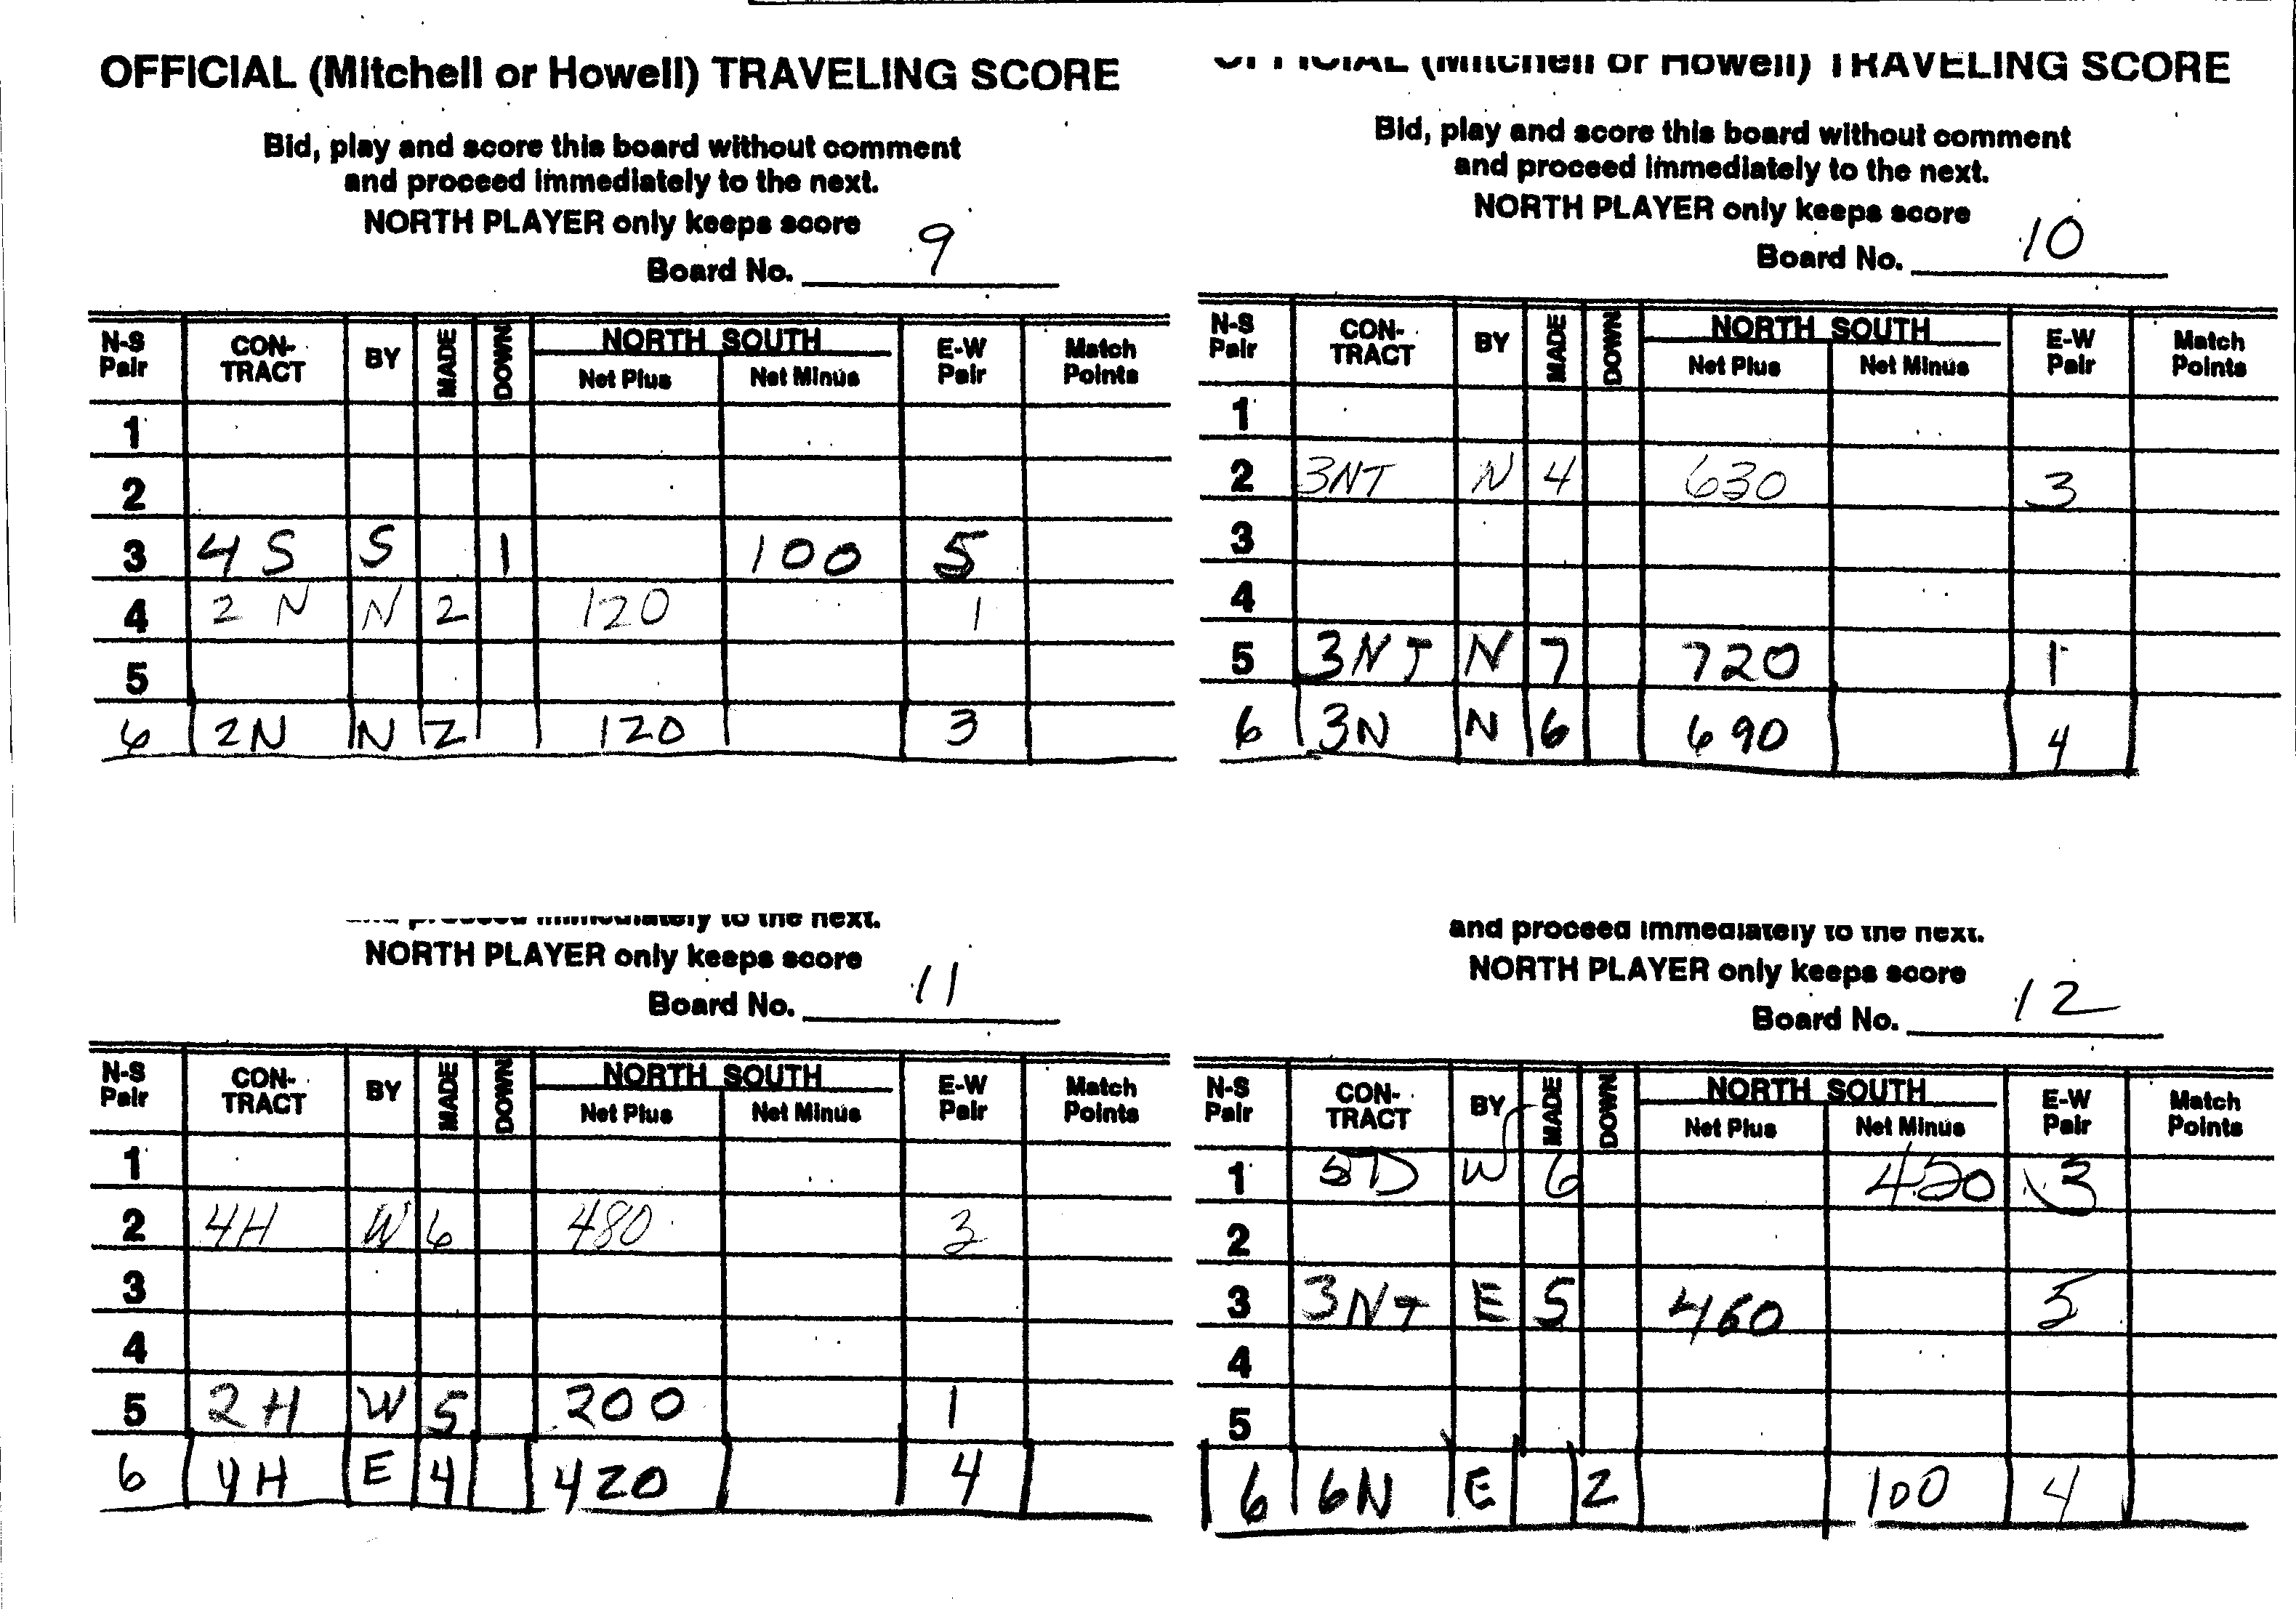 OFFICIAL (Mitchell or Howell) TRAVELING SCORE
Bid, play and score this board without comment
and proceed immediately to the next.
NORTH PLAYER only keeps score
Board No. 9
N-S Pair CON-TRACT BY MADE DOWN NORTH SOUTH Net Plus Net Minus E-W Pair Match Points
1
2
3 4 S S 1 100 5
4 2 N N 2 120 1
5
6 2N N 2 120 3
OFFICIAL (Mitchell or Howell) TRAVELING SCORE
Bid, play and score this board without comment
and proceed immediately to the next.
NORTH PLAYER only keeps score
Board No. 10
N-S Pair CON-TRACT BY MADE DOWN NORTH SOUTH Net Plus Net Minus E-W Pair Match Points
1
2 3NT N 4 630 3
3
4
5 3NT N 7 720 1
6 3N N 6 690 4
and proceed immediately to the next.
NORTH PLAYER only keeps score
Board No. 11
N-S Pair CON-TRACT BY MADE DOWN NORTH SOUTH Net Plus Net Minus E-W Pair Match Points
1
2 4H W 6 480 3
3
4
5 2H W 5 200 1
6 4H E 4 420 4
and proceed immediately to the next.
NORTH PLAYER only keeps score
Board No. 12
N-S Pair CON-TRACT BY MADE DOWN NORTH SOUTH Net Plus Net Minus E-W Pair Match Points
1 5D W 6 420 3
2
3 3NT E 5 460 5
4
5
6 6N E 2 100 4